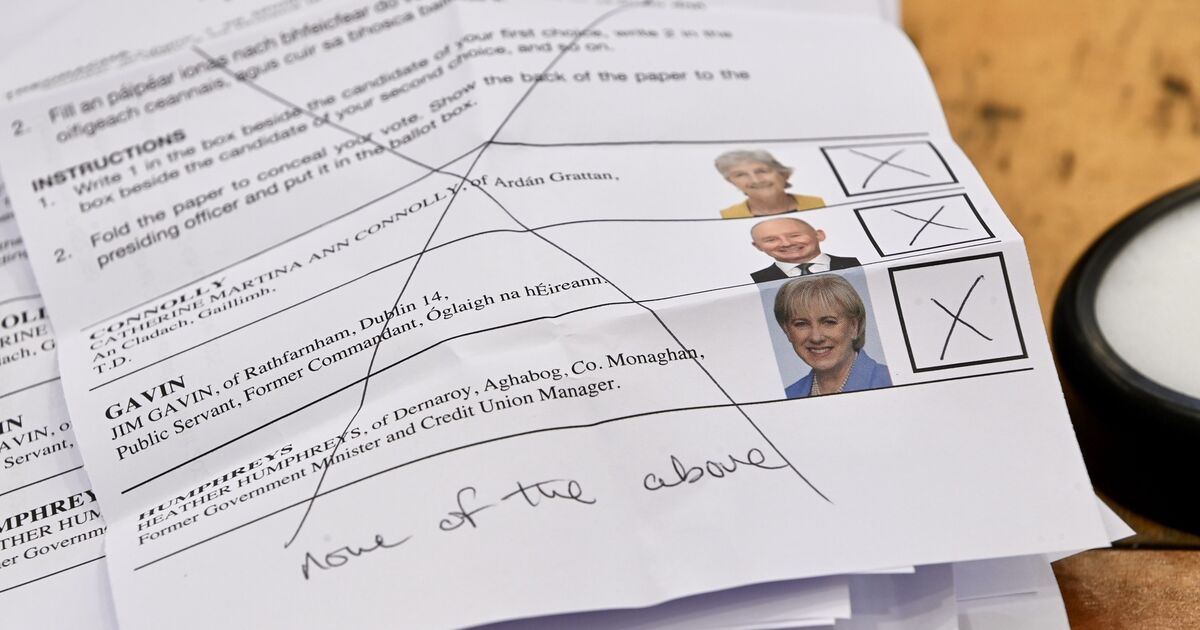 2. Fill an páipéar ionas nach bhfeicfear do
oifigeach ceannais, agus cuir sa bhosca
INSTRUCTIONS
1. Write 1 in the box beside the candidate of your first choice, write 2 in the
box beside the candidate of your second choice, and so on.
2. Fold the paper to conceal your vote. Show the back of the paper to the
presiding officer and put it in the ballot box.
CONNOLLY
CATHERINE MARTINA ANN CONNOLLY, of Ardán Grattan,
An Cladach, Gaillimh.
T.D.
X
GAVIN
JIM GAVIN, of Rathfarnham, Dublin 14,
Public Servant, Former Commandant, Óglaigh na hÉireann.
X
HUMPHREYS
HEATHER HUMPHREYS, of Dernaroy, Aghabog, Co. Monaghan,
Former Government Minister and Credit Union Manager.
X
none of the above